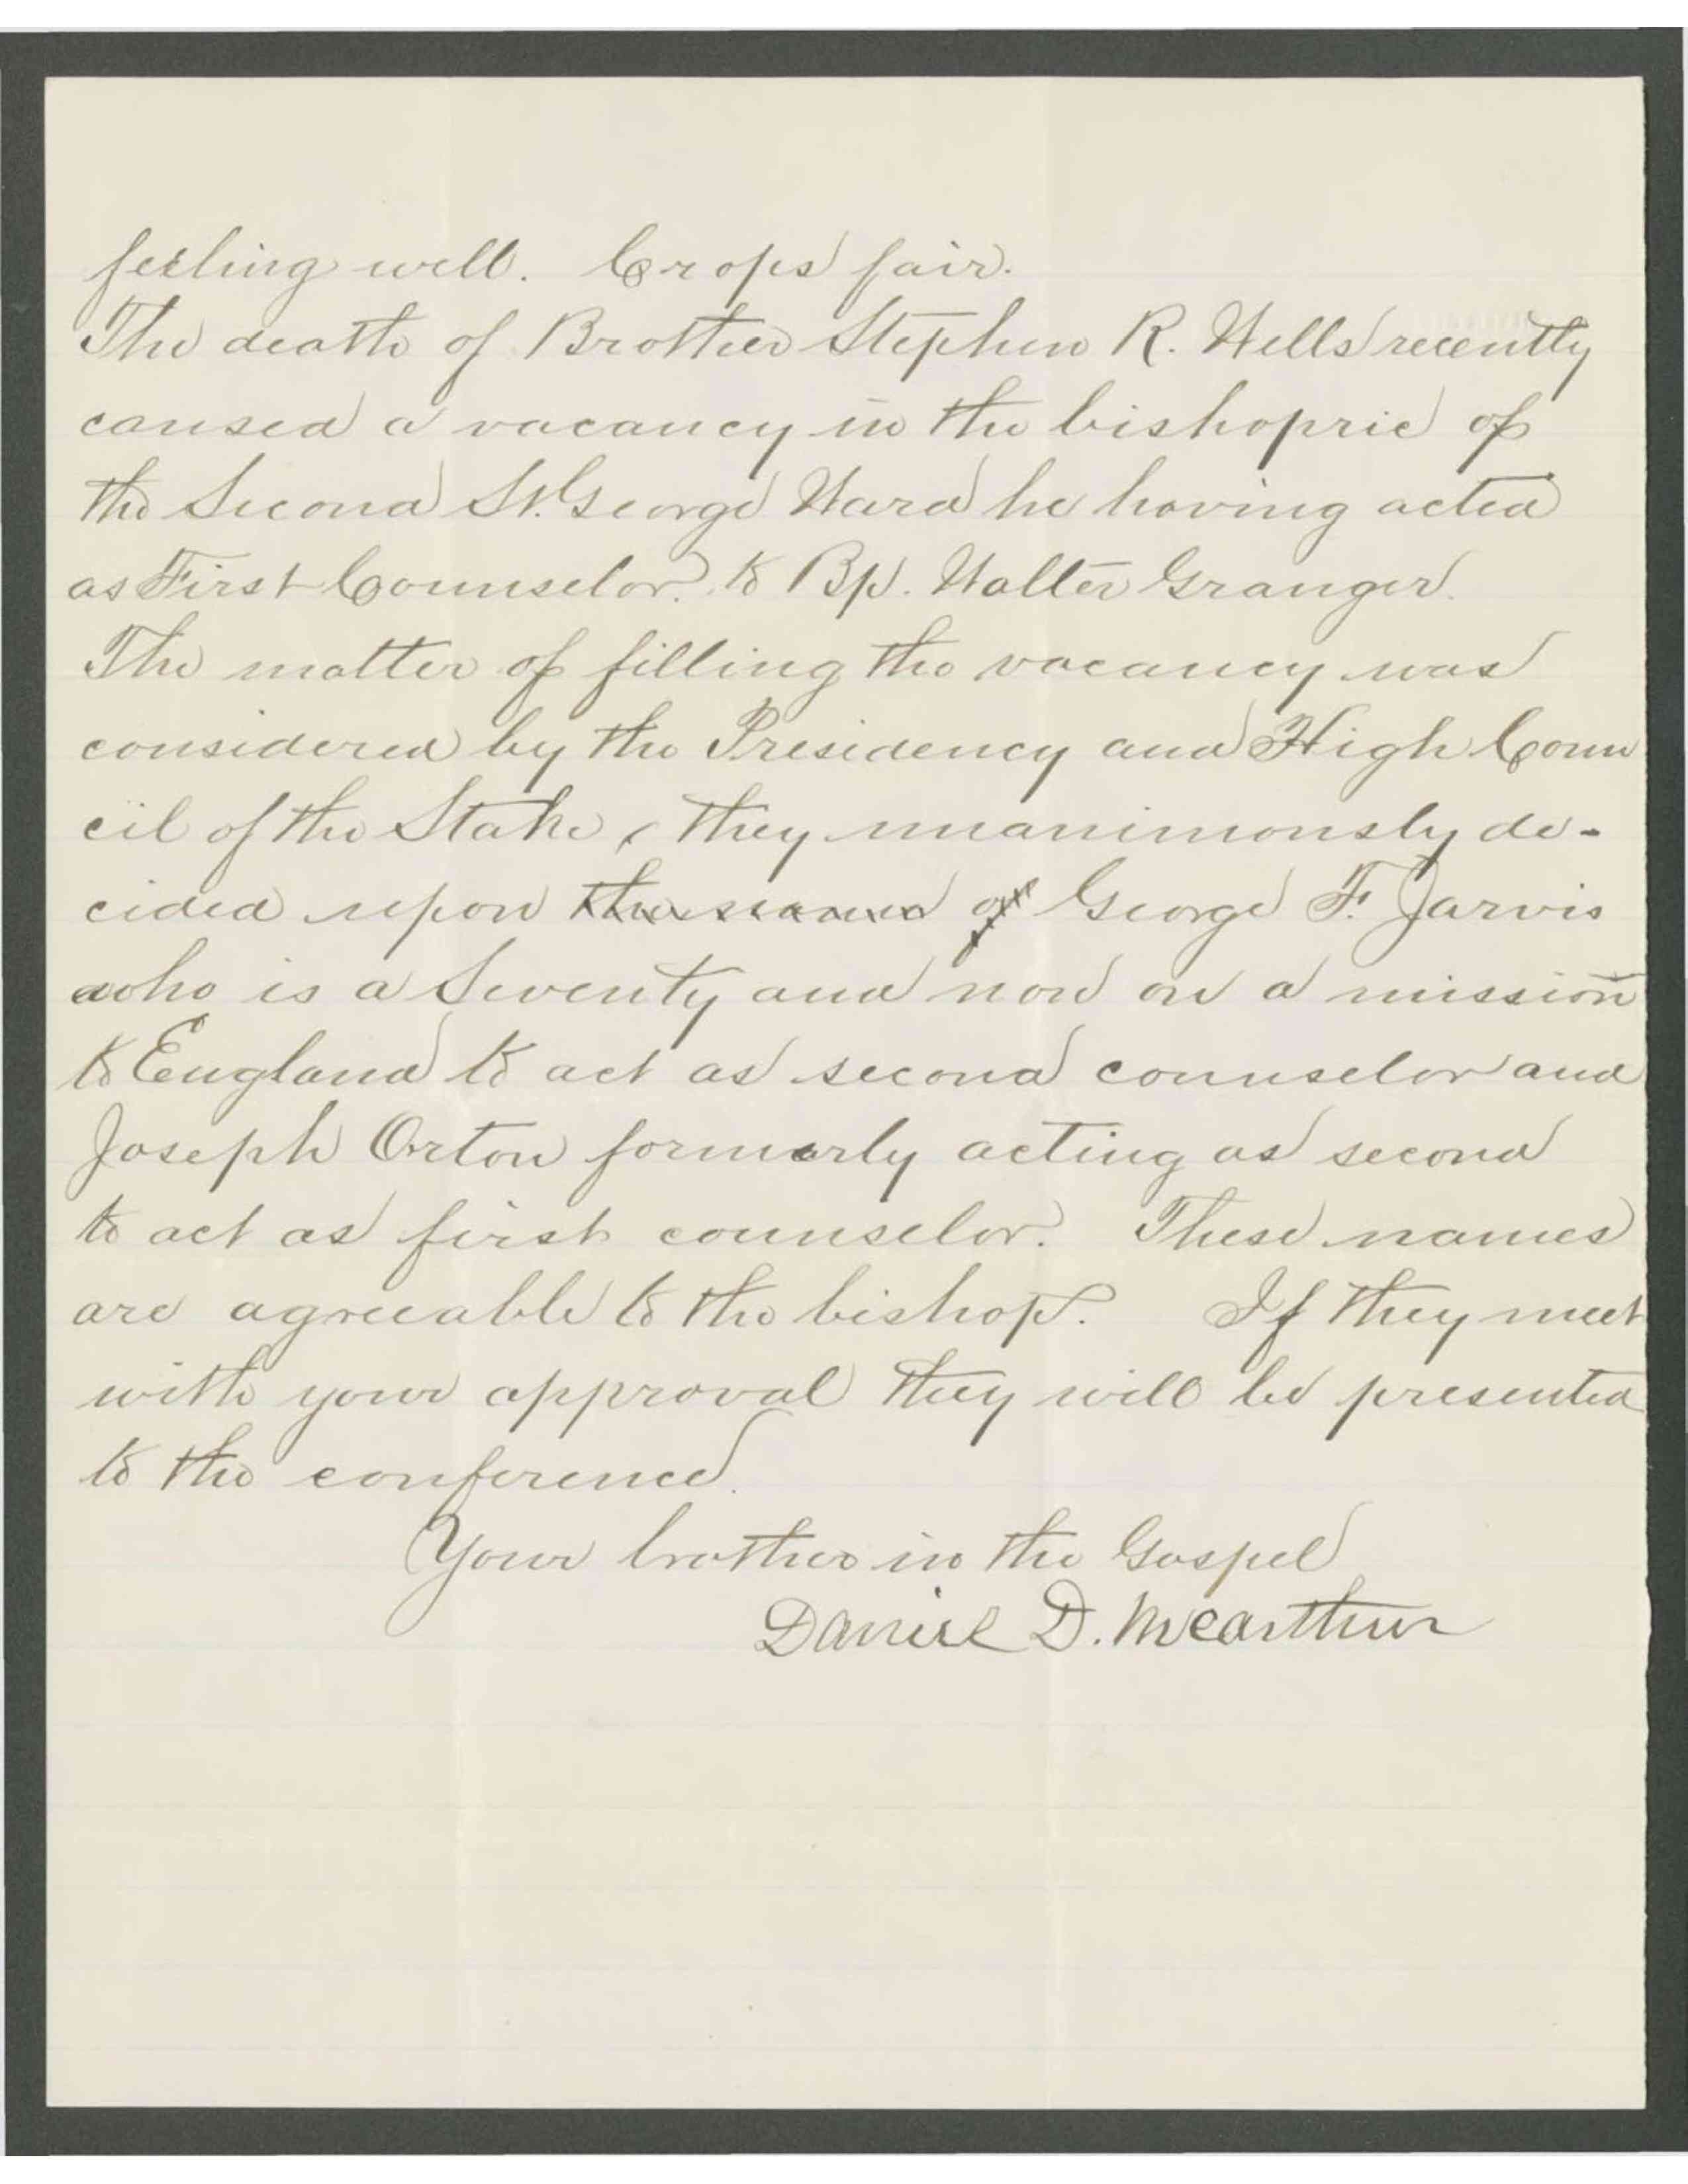 feeling well. Crops fair.
The death of Brother Stephen R. Wells recently
caused a vacancy in the bishopric of
the Second St. George Ward he having acted
as First Counselor. to Bp. Walter Granger.
The matter of filling the vacancy was
considered by the Presidency and High Coun
cil of the Stake, they unanimously de-
cided upon the names of George F. Jarvis
who is a Seventy and now on a mission
to England to act as second counselor and
Joseph Orton formerly acting as second
to act as first counselor. These names
are agreeable to the bishop. If they meet
with your approval they will be presented
to the conference.
Your brother in the Gospel
Daniel D. McArthur